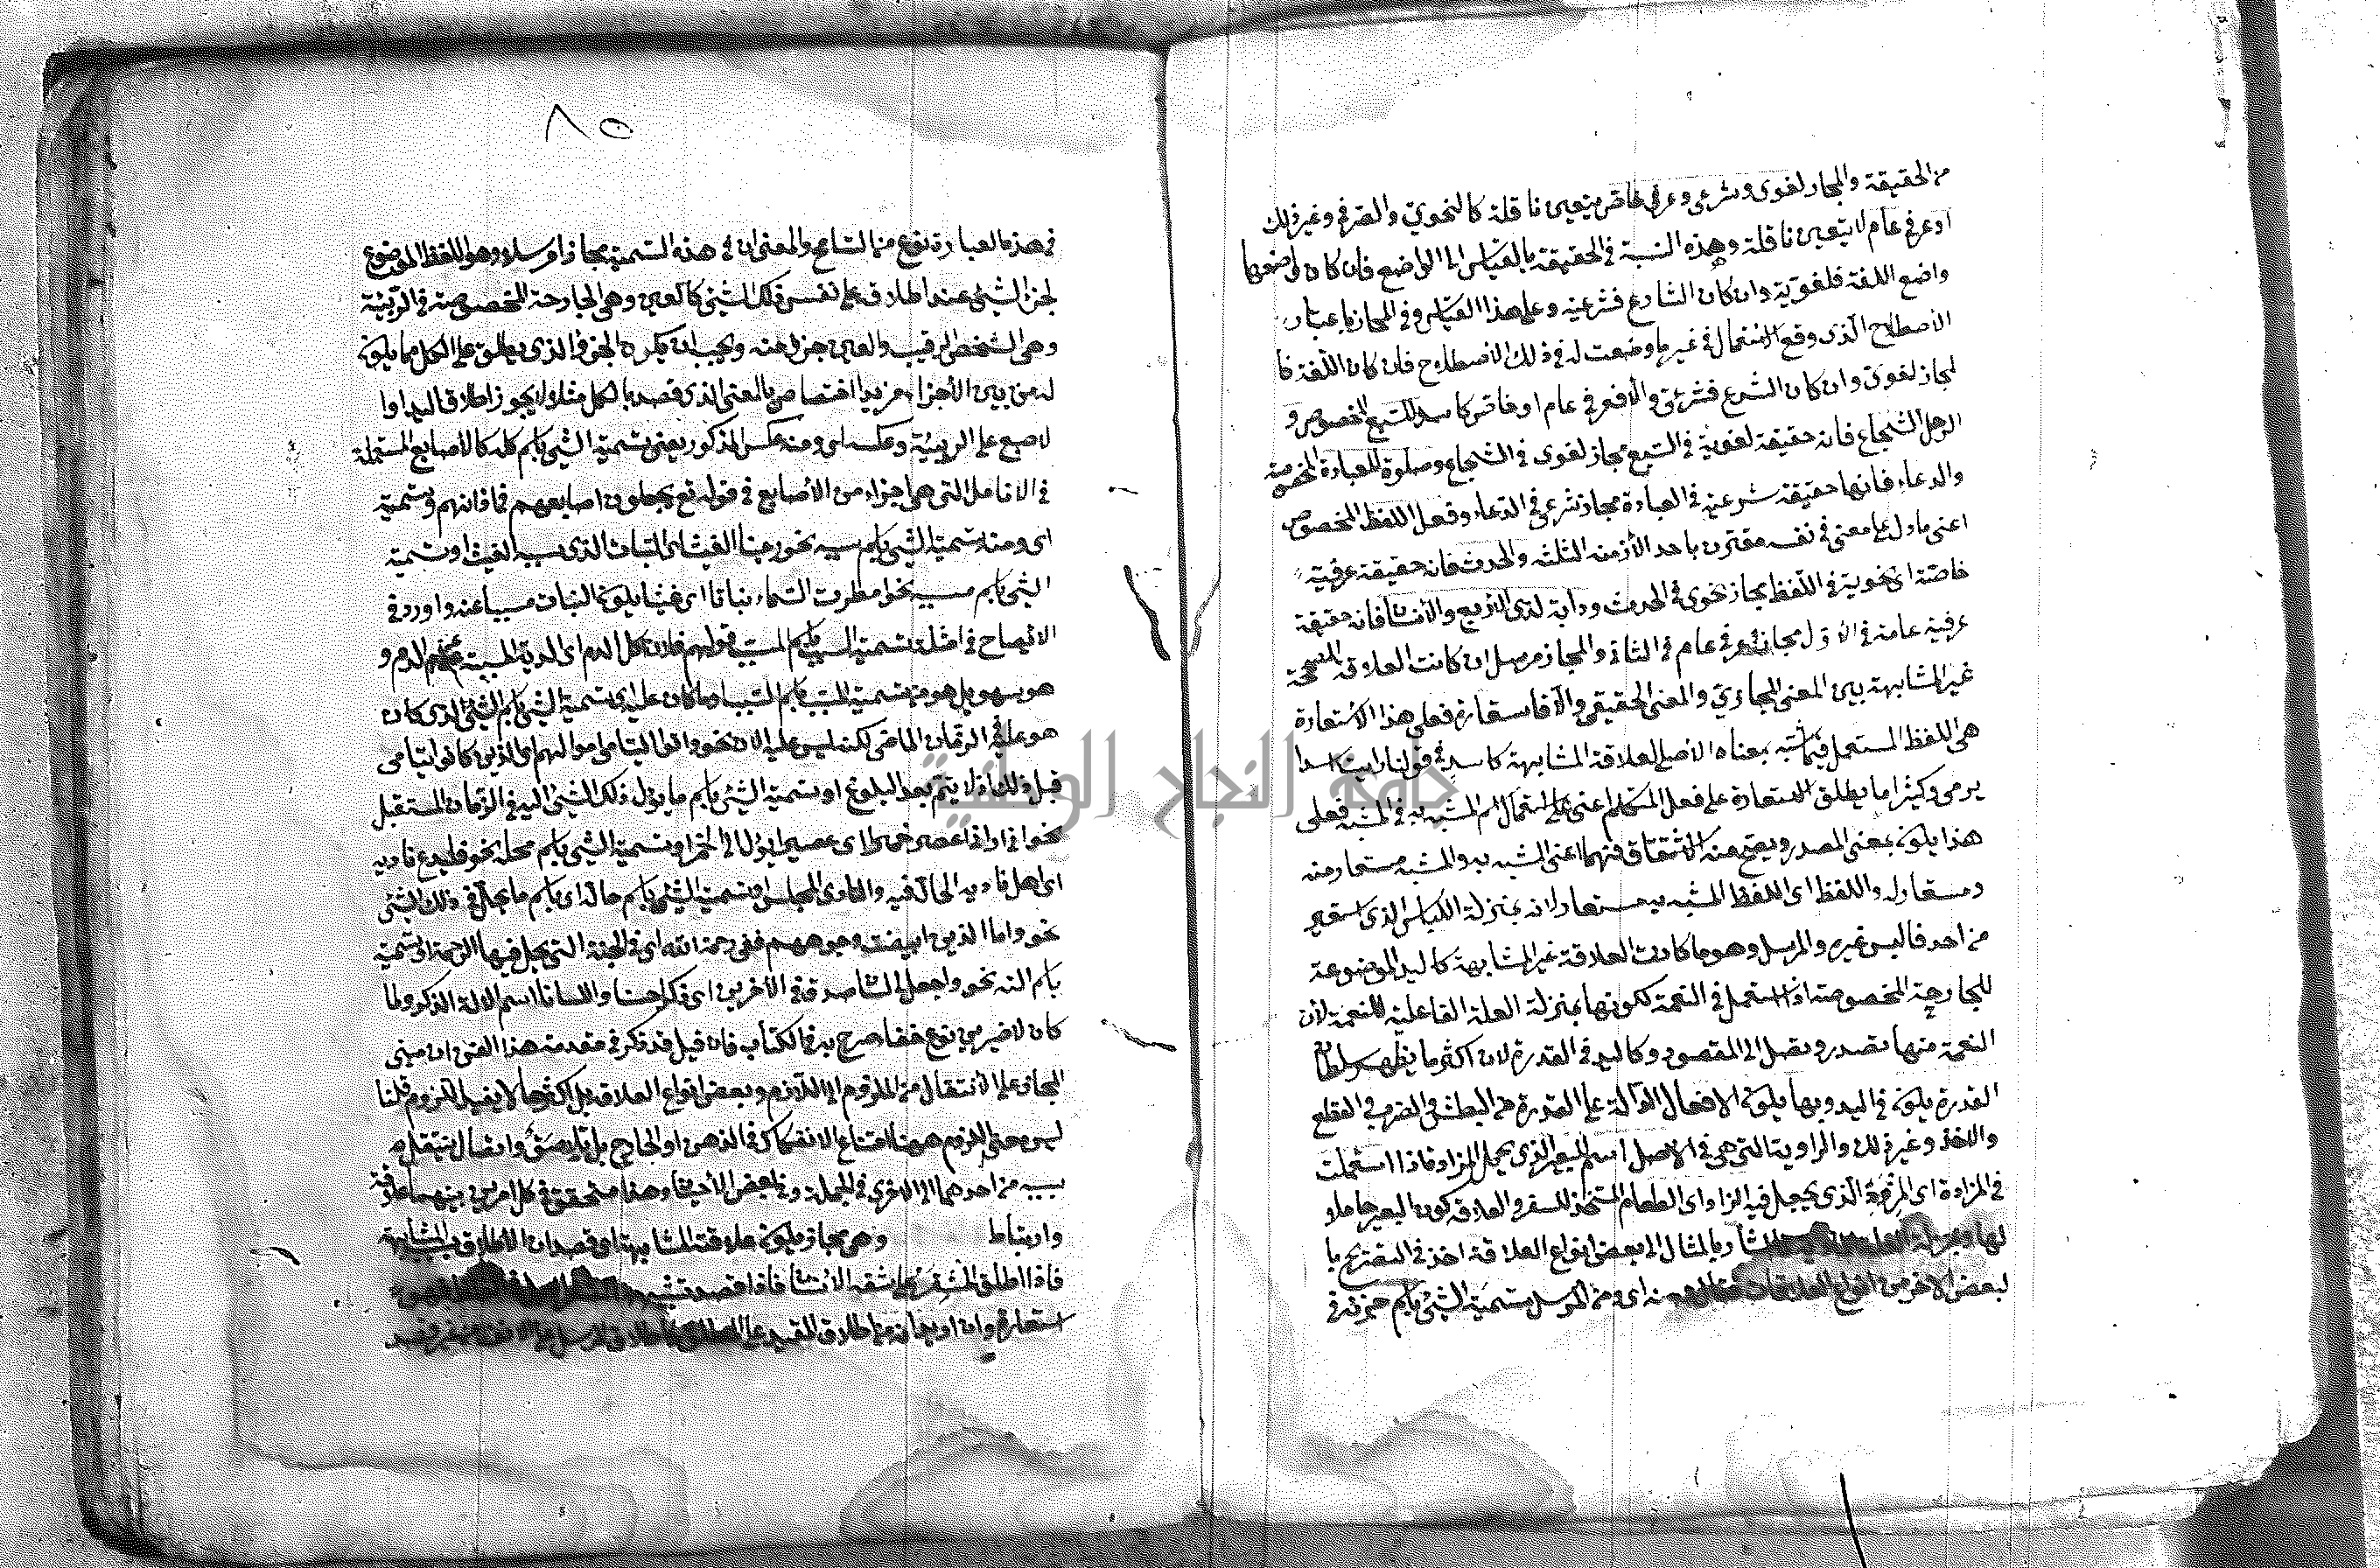 من الحقيقة والمجاز لغوى وشرعى وعرفى خاص يتعين ناقله كالنحوى والصرفى وغير ذلك
او عرفى عام لا يتعين ناقله وهذه النسبة فى الحقيقة بالقياس الى الواضع فان كان واضعها
واضع اللغة فلغوية وان كان الشارع فشرعية وعلى هذا القياس وفى المجاز باعتبار
الاصطلاح الذى وقع الاستعمال فى غير ما وضعت له فى ذلك الاصطلاح فان كان اللغة فا
لمجاز لغوى وان كان الشرع فشرعى والا فعرفى عام او خاص كاسد للسبع المخصوص و
الرجل الشجاع فانه حقيقة لغوية فى السبع مجاز لغوى فى الشجاع وصلوة للعبادة المخصوصة
والدعاء فانها حقيقة شرعية فى العبادة مجاز شرعى فى الدعاء وفعل اللفظ المخصوص
اعنى ما دل على معنى فى نفسه مقترن باحد الأزمنة الثلثة والحدث فانه حقيقة عرفية
خاصة اى نحوية فى اللفظ مجاز نحوى فى الحدث ودابة لذى الأربع والأنسان فانه حقيقة
عرفية عامة فى الاول مجاز عرفى عام فى الثانى والمجاز مرسل ان كانت العلاقة المصححة
غير المشابهة بين المعنى المجازى والمعنى الحقيقى والا فاستعارة فعلى هذا الاستعارة
هى اللفظ المستعمل فيما شبه بمعناه الأصلى لعلاقة المشابهة كاسد فى قولنا رايت اسدا
يرمى وكثيرا ما يطلق الاستعارة على فعل المتكلم اعنى على استعمال اسم المشبه به فى المشبه فعلى
هذا يكون بمعنى المصدر ويصح منه الاشتقاق فهما اعنى المشبه به والمشبه مستعار منه
ومستعار له واللفظ اى اللفظ المشبه به مستعار لانه بمنزلة اللباس الذى استعير
من احد فالبس غيره والمرسل وهو ما كانت العلاقة غير المشابهة كاليد الموضوعة
للجارحة المخصوصة اذا استعمل فى النعمة لكونها بمنزلة العلة الفاعلية للنعمة لان
النعمة منها تصدر وتصل الى المقصود وكاليد فى القدرة لان اكثر ما يظهر سلطان
القدرة يكون فى اليد وبها يكون الافعال الدالة على القدرة من البطش والضرب والقطع
والاخذ وغير ذلك والراوية التى هى فى الاصل اسم للبعير الذى يحمل المزادة فاذا استعملت
فى المزادة اى المزود الذى يجعل فيه الزاد اى الطعام المتخذ للسفر والعلاقة كون البعير حاملا
لها وبمنزلة العلة المادية ولما اشار بالمثال الى بعض انواع العلاقة اخذ فى التصريح با
لبعض الاخر من انواع العلاقات فقال ومنه اى ومن المرسل تسمية الشئ باسم جزئه فى
٨٥
فى هذه العبارة نوع من التسامح والمعنى ان فى هذه التسمية مجازا مرسلا وهو اللفظ الموضوع
لجزء الشئ عند اطلاقه على نفس ذلك الشئ كالعين وهى الجارحة المخصوصة فى الربيئة
وهى الشخص الرقيب والعين جزء منه ويجب ان يكون الجزء الذى يطلق على الكل مما يكون
له من بين الأجزاء مزيد اختصاص بالمعنى الذى قصد بالكل مثلا لا يجوز اطلاق اليد او ا
لاصبع على الربيئة وعكسه اى ومنه عكس المذكور يعنى تسمية الشئ باسم كله كالأصابع المستعملة
فى الانامل التى هى اجزاء من الأصابع فى قوله تع يجعلون اصابعهم فى اذانهم وتسميته
اى ومنه تسمية الشئ باسم سببه نحو رعينا الغيث اى النبات الذى سببه الغيث او تسمية
الشئ باسم مسببه نحو امطرت السماء نباتا اى غيثا يكون النبات مسببا عنه واورد فى
الايضاح فى امثلة تسمية السبب باسم المسبب قولهم فلان اكل الدم اى الدية المسببة عن الدم و
هو سهو بل هو من تسمية المسبب باسم السبب او ما كان عليه اى تسمية الشئ باسم الشئ الذى كان
هو عليه فى الزمان الماضى لكنه ليس عليه الان نحو واتوا اليتامى اموالهم اى الذين كانوا يتامى
قبل ذلك اذ لا يتم بعد البلوغ او تسمية الشئ باسم ما يؤل ذلك الشئ اليه فى الزمان المستقبل
نحو انى ارانى اعصر خمرا اى عصيرا يؤل الى الخمر او تسمية الشئ باسم محله نحو فليدع ناديه
اى اهل ناديه الحال فيه والنادى المجلس او تسمية الشئ باسم حاله اى باسم ما يحل فى ذلك الشئ
نحو واما الذين ابيضت وجوههم ففى رحمة الله اى فى الجنة التى يحل فيها الرحمة او تسميته
باسم الته نحو واجعل لى لسان صدق فى الأخرين اى ذكرا حسنا واللسان اسم لالة الذكر ولما
كان لاخيرين نوع خفاء صرح به فى الكتاب فان قيل قد ذكر فى مقدمة هذا الفن ان مبنى
المجاز على الأنتقال من الملزوم الى اللازم وبعض انواع العلاقة بل اكثرها لا يفيد اللزوم قلنا
ليس معنى اللزوم ههنا امتناع الانفكاك فى الذهن او الخارج بل تلاصق واتصال ينتقل
بسببه من احدهما الى الاخر فى الجملة وفى بعض الأحيان وهذا متحقق فى كل امرين بينهما علاقة
وارتباط وهى مجاز يكون علاقته المشابهة اى قصد ان الاطلاق بسبب المشابهة
فاذا اطلق المشفر على شفة الانسان فاذا قصد تشبيهها
استعارة وان اريد انه من اطلاق المقيد على المطلق كاطلاق المرسل على الانف